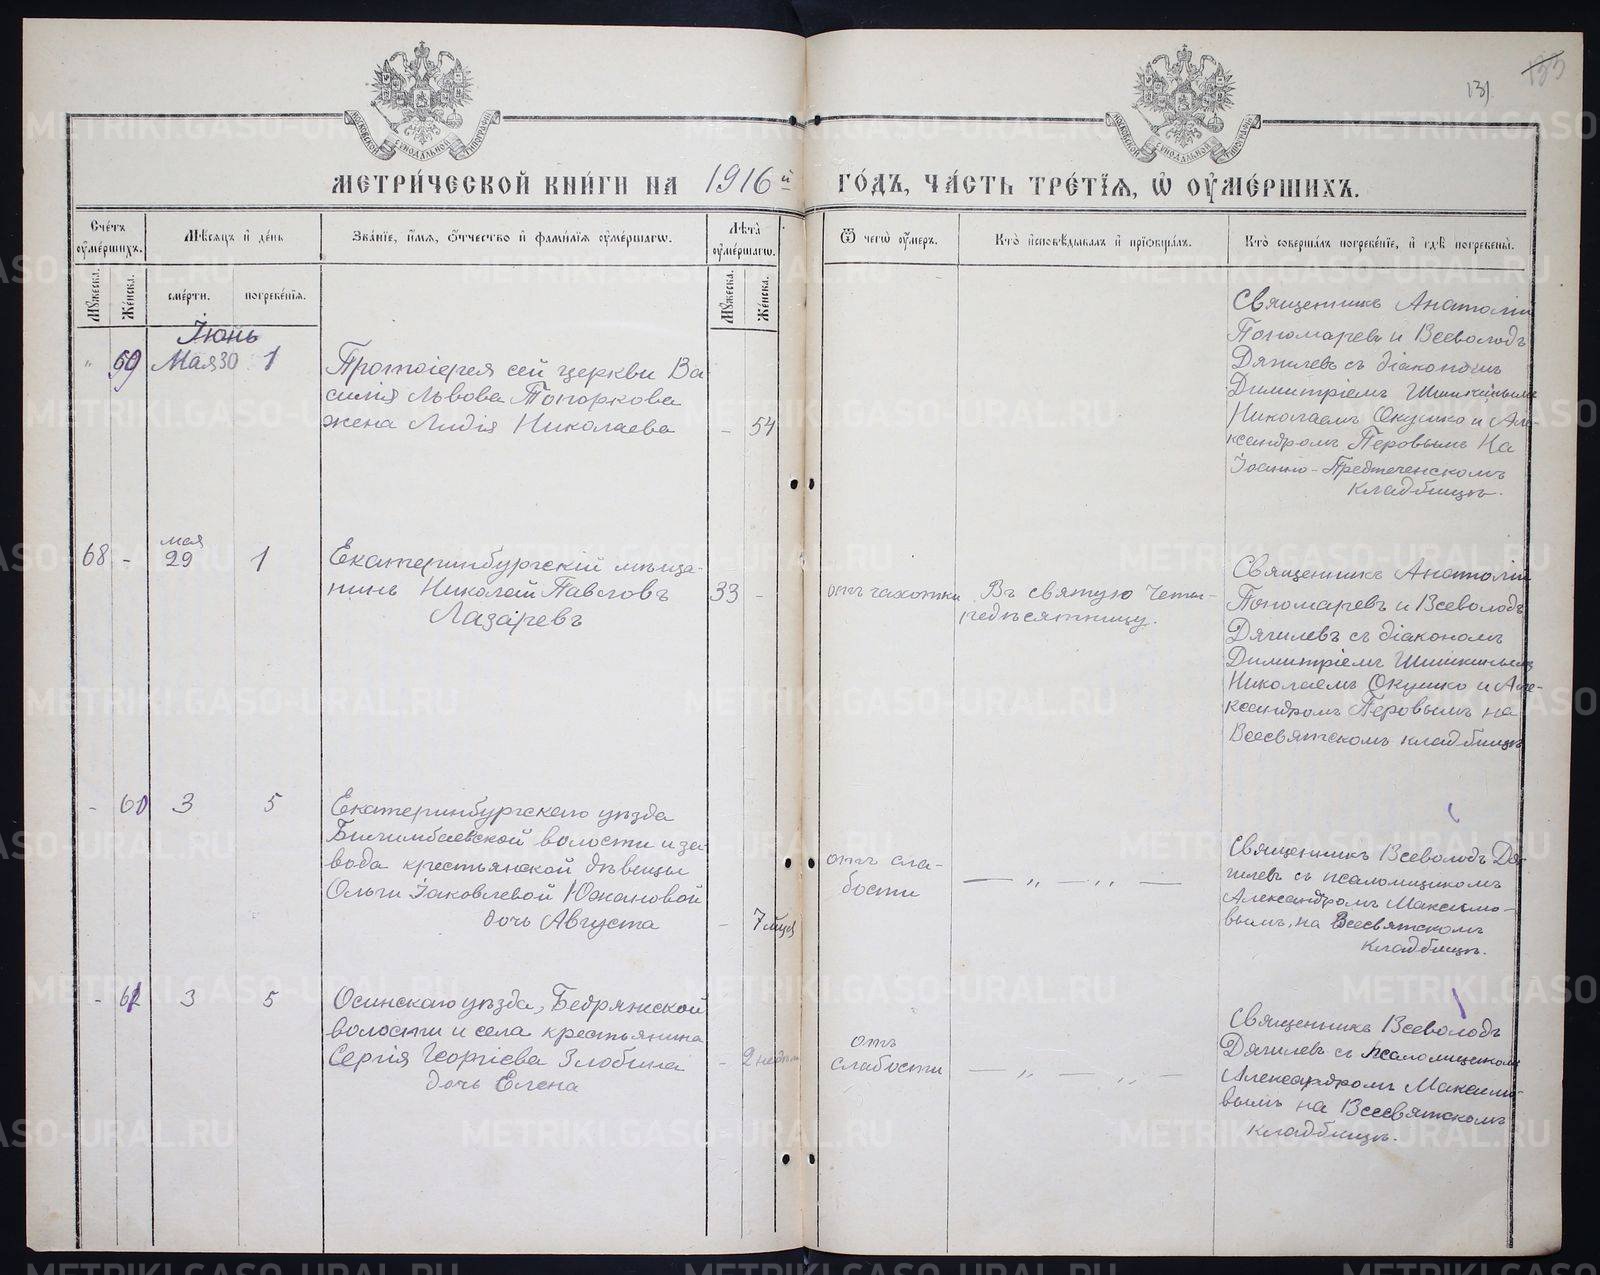 131
133
МОСКОВСКОЙ СУНОДАЛЬНОЙ ТИПОГРАФИИ
МОСКОВСКОЙ СУНОДАЛЬНОЙ ТИПОГРАФИИ
МЕТРИ́ЧЕСКОЙ КНИ́ГИ НА 1916й ГО́ДЪ, ЧА́СТЬ ТРЕ́ТЇѦ, Ѡ ОУ҆МЕ́РШИХЪ.
Сче́тъ оу҆ме́ршихъ.
Мѣ́сѧцъ и҆ де́нь
Зва́нїе, и҆́мѧ, ѻ҆́тчество и҆ фами́лїѧ оу҆ме́ршагѡ.
Лѣ́та оу҆ме́ршагѡ.
Ѿ чегѡ̀ оу҆́меръ.
Кто̀ и҆сповѣ́дывалъ и҆ прїѡбща́лъ.
Кто̀ соверша́лъ погребе́нїе, и҆ гдѣ̀ погребены̀.
Мꙋ́жеска.
Же́нска.
сме́рти.
погребе́нїѧ.
Мꙋ́жеска.
Же́нска.
Іюнь
" 59 Мая 30 1
Протоіерея сей церкви Ва-
силія Львова Топоркова
жена Лидія Николаева
- 54
Священникъ Анатолій
Пономаревъ и Всеволодъ
Дягилевъ съ діакономъ
Димитріемъ Шишкинымъ
Николаемъ Окушко и Але-
ксандромъ Перовымъ на
Іоанно-Предтеченскомъ
кладбищѣ.
68 - мая
29 1
Екатеринбургскій мѣща-
нинъ Николай Павловъ
Лазаревъ
33 -
отъ чахотки
Въ святую Четы-
редесятницу.
Священникъ Анатолій
Пономаревъ и Всеволодъ
Дягилевъ съ діакономъ
Димитріемъ Шишкинымъ
Николаемъ Окушко и Але-
ксандромъ Перовымъ на
Всесвятскомъ кладбищѣ
- 60 3 5
Екатеринбургскаго уѣзда
Билимбаевской волости и за-
вода крестьянской дѣвицы
Ольги Іаковлевой Южановой
дочь Августа
- 7 мцев
отъ сла-
бости
— „ — „ —
Священникъ Всеволодъ Дя-
гилевъ съ псаломщикомъ
Александромъ Максимо-
вымъ, на Всесвятскомъ
кладбищѣ.
- 61 3 5
Осинскаго уѣзда, Бедряжской
волости и села крестьянина
Сергія Георгіева Злобина
дочь Елена
- 2 недѣли
отъ
слабости
— „ — „ —
Священникъ Всеволодъ
Дягилевъ съ псаломщикомъ
Александромъ Максимо-
вымъ на Всесвятскомъ
кладбищѣ.
METRIKI.GASO-URAL.RU